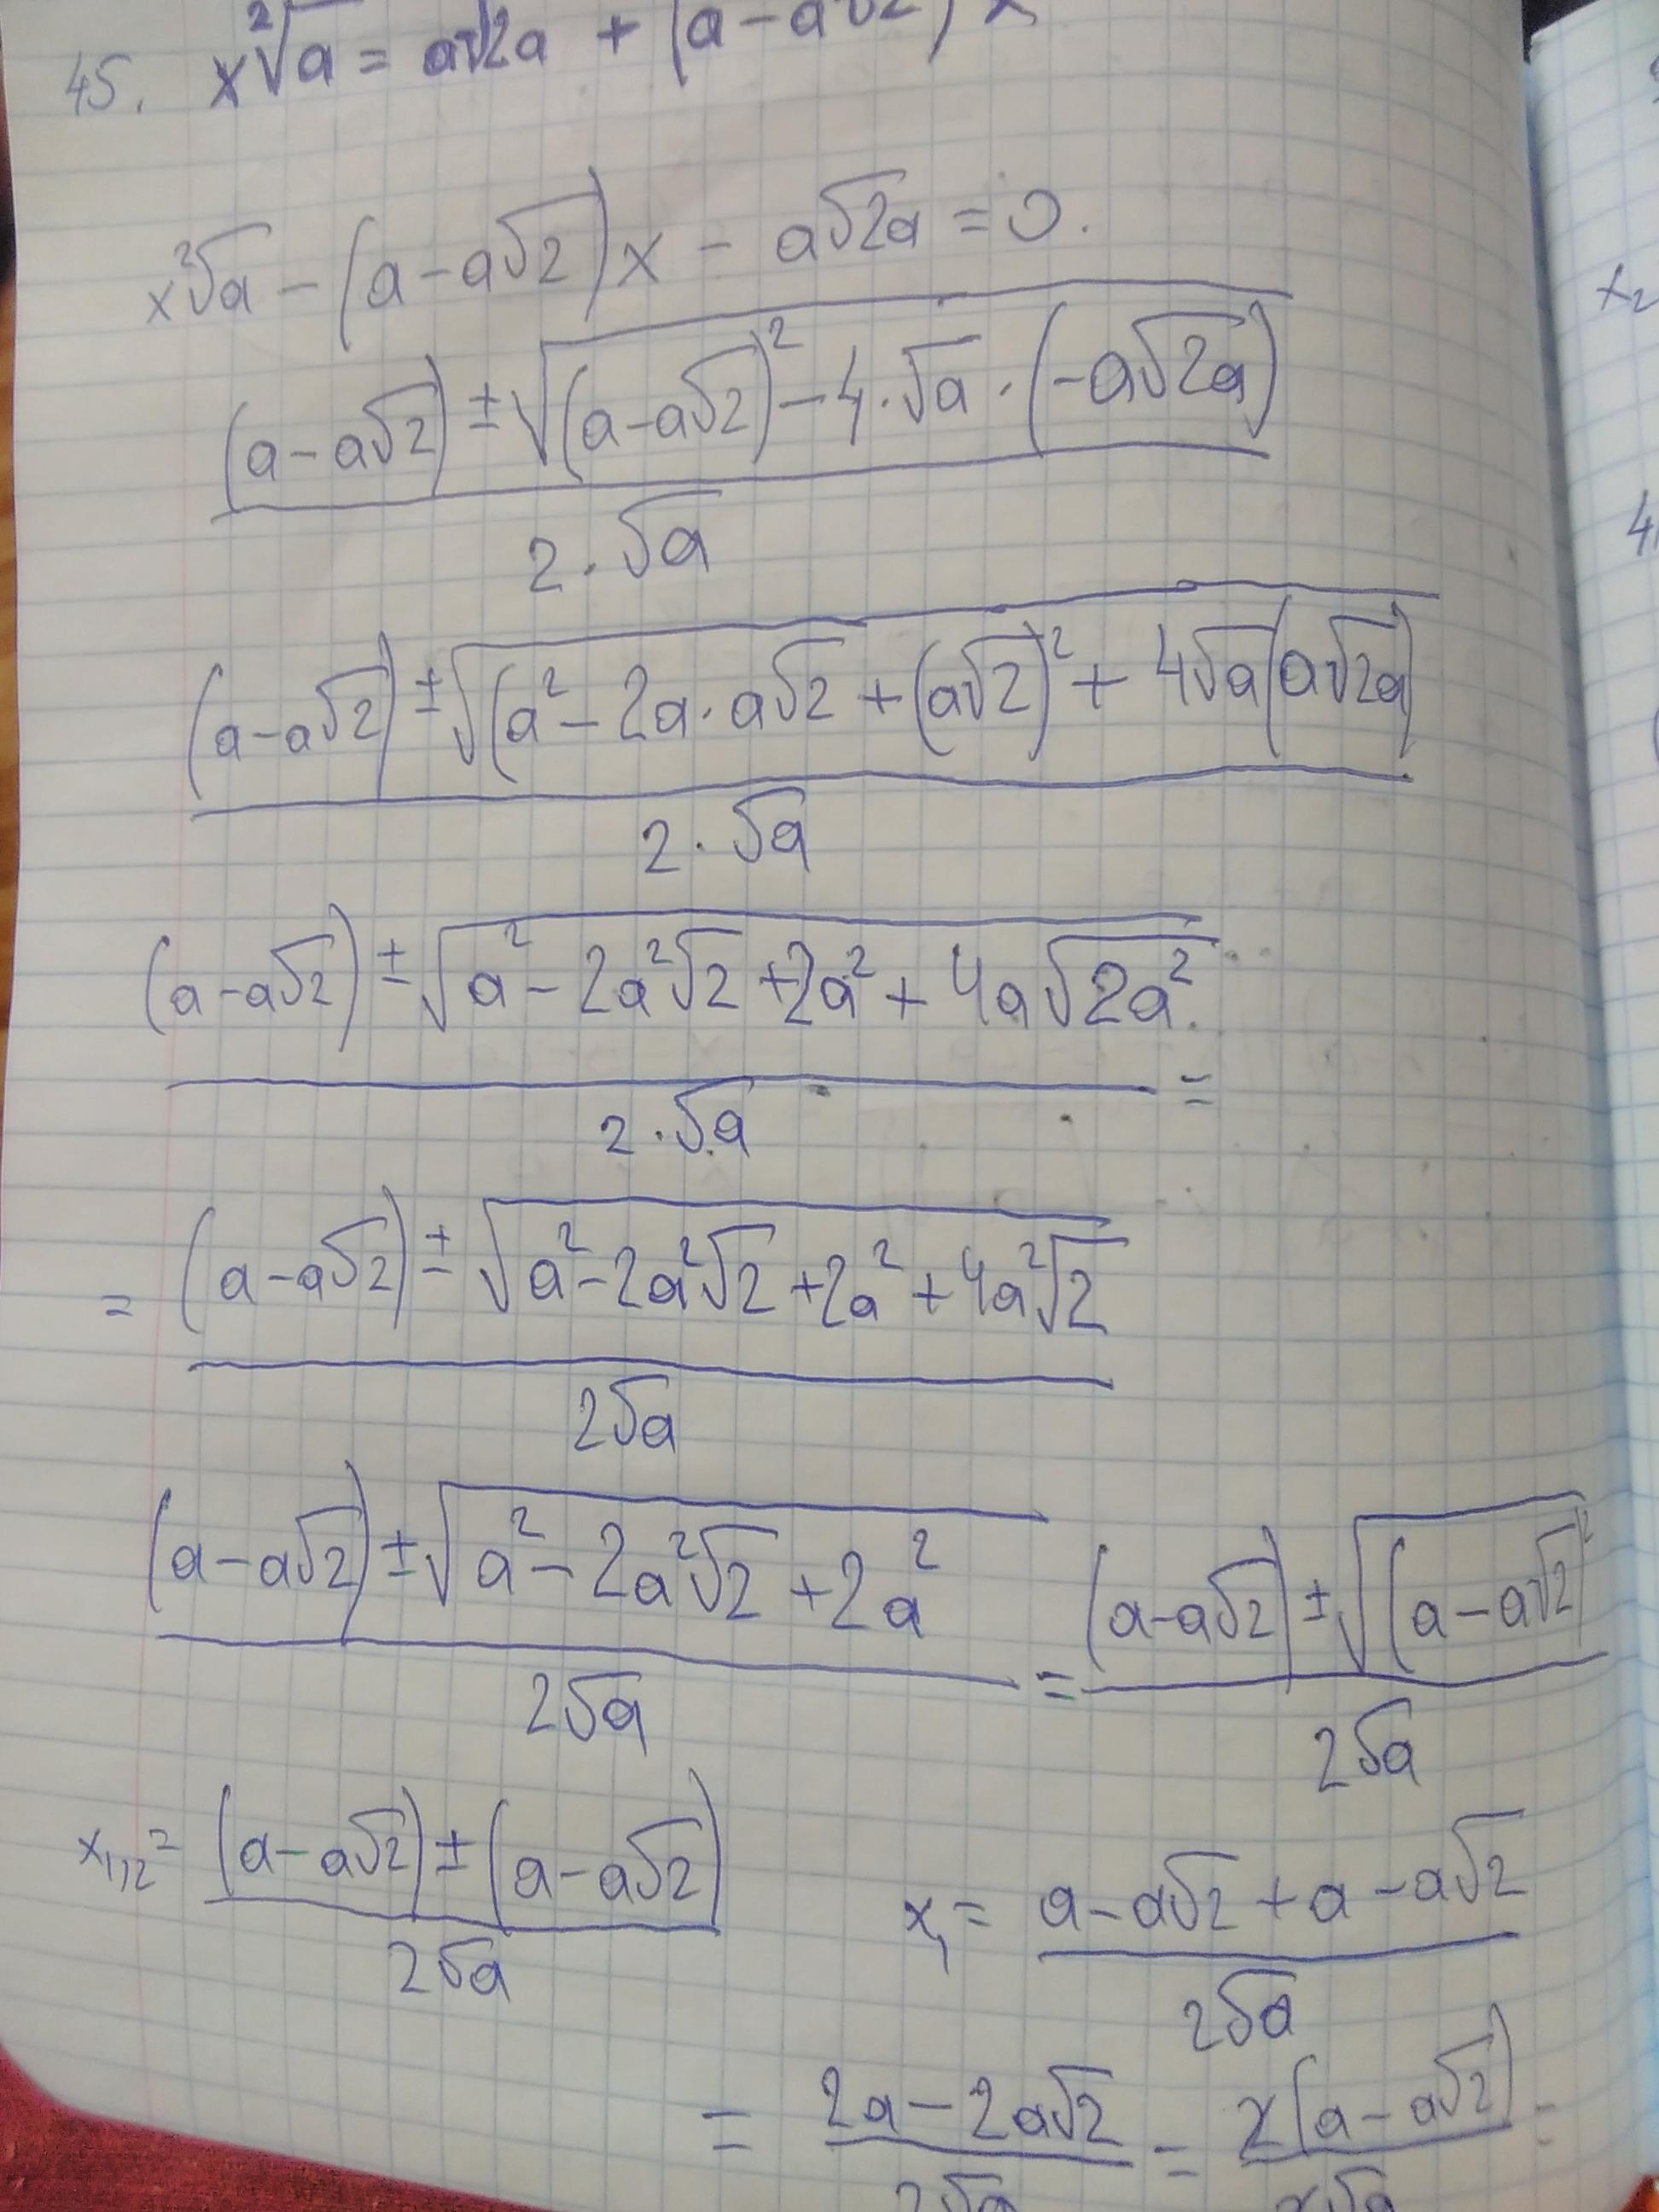 45. x²√a = a√2a + (a - a√2) x
x²√a - (a - a√2) x - a√2a = 0.
(a - a√2) ± √((a - a√2)² - 4 · √a · (-a√2a))
2 · √a
(a - a√2) ± √(a² - 2a · a√2 + (a√2)² + 4√a(a√2a)
2 · √a
(a - a√2) ± √a² - 2a²√2 + 2a² + 4a√2a²
2 · √a =
= (a - a√2) ± √a² - 2a²√2 + 2a² + 4a²√2
2√a
(a - a√2) ± √a² - 2a²√2 + 2a² = (a - a√2) ± √(a - a√2)²
2√a 2√a
x1,2 = (a - a√2) ± (a - a√2)
2√a
x1 = a - a√2 + a - a√2
2√a
= 2a - 2a√2 = 2(a - a√2) =
2√a 2√a
x2